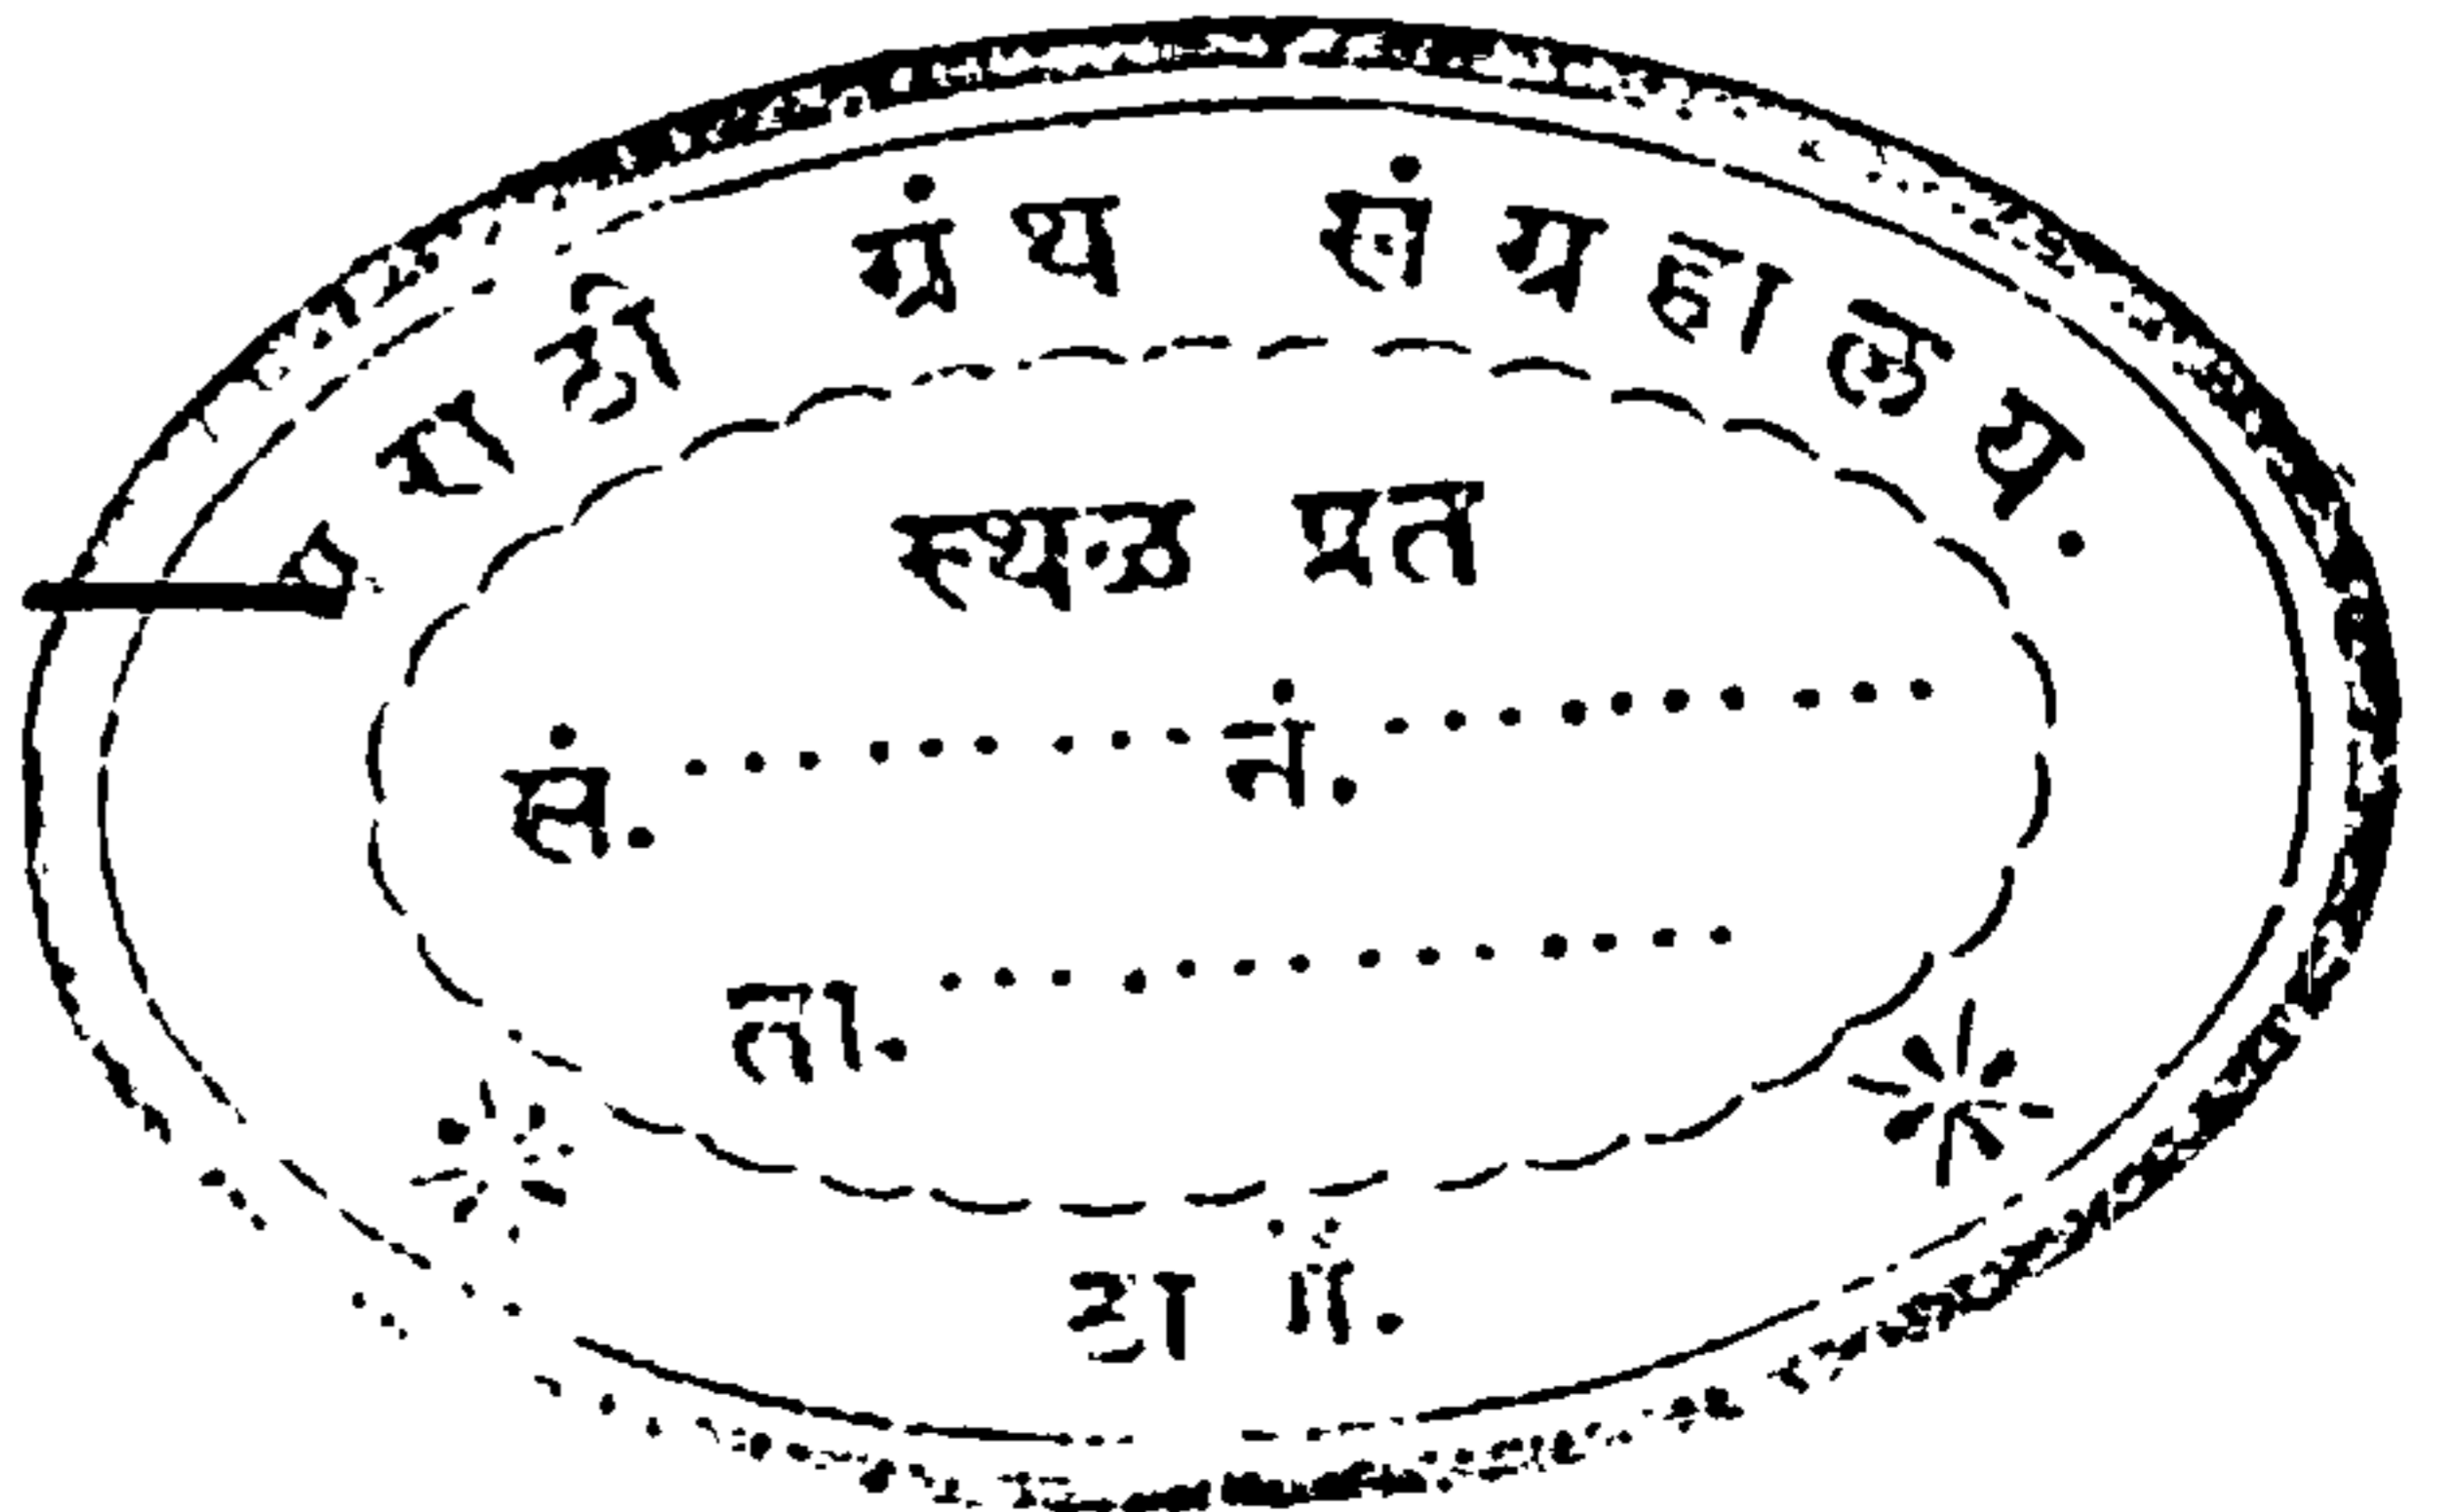 मराठी ग्रंथ संग्रहालय.
स्थळ प्रत
सं. ......... नं. ..........
ता. .............
ठाणें.